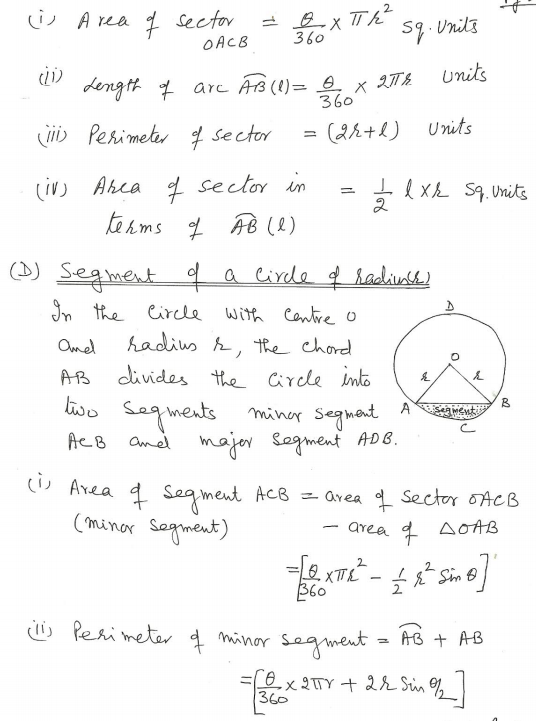 (i) Area of sector OACB = θ/360 × πr² sq. units
(ii) Length of arc AB (l) = θ/360 × 2πr units
(iii) Perimeter of sector = (2r+l) units
(iv) Area of sector in = 1/2 l × r sq. units
terms of AB (l)
(D) Segment of a circle of radius(r)
In the circle with centre O
and radius r, the chord
AB divides the circle into
two segments minor segment
ACB and major segment ADB.
D
O
r r
A segment B
C
(i) Area of segment ACB = area of sector OACB
(minor segment) - area of ΔOAB
= [θ/360 × πr² - 1/2 r² sin θ]
(ii) Perimeter of minor segment = AB + AB
= [θ/360 × 2πr + 2r sin θ/2]